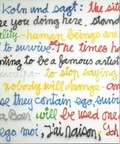 Köln und sagt: the site
e you doing here, stand
lity human beings are
to survive. The times ha
nting to be a famous artist
to stop saying
nobody will change. an
se they contain ego, surviv
Bau will be used one
ego moi, J'ai raison, Ich